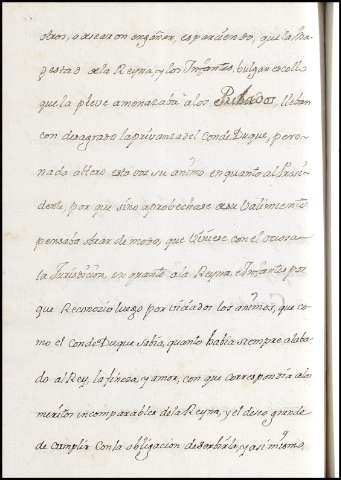 otros, o desearon engañar, esparciendo, que la Ma-
gestad de la Reyna, y los Infantes, vulgar escollo
que la pleve amenazaba a los Pribados, lleban
con desagrado la privanza del Conde Duque, pero
nada altero esta voz su animo en quanto al Presi-
dente, por que sino aprobechase de su Valimiento
pensaba tratar de modo, que viviese con el
la Jurisdicion, en quanto a la Reyna, e Infantes por
que Reconozio luego por los animos, que co
mo el Conde Duque sabia, quanto habia siempre alaba
do al Rey, la fineza, y amor, con que correspondia a los
meritos incomparables de la Reyna, y el deseo grande
de cumplir con la obligacion de serbirla, y asi mismo,